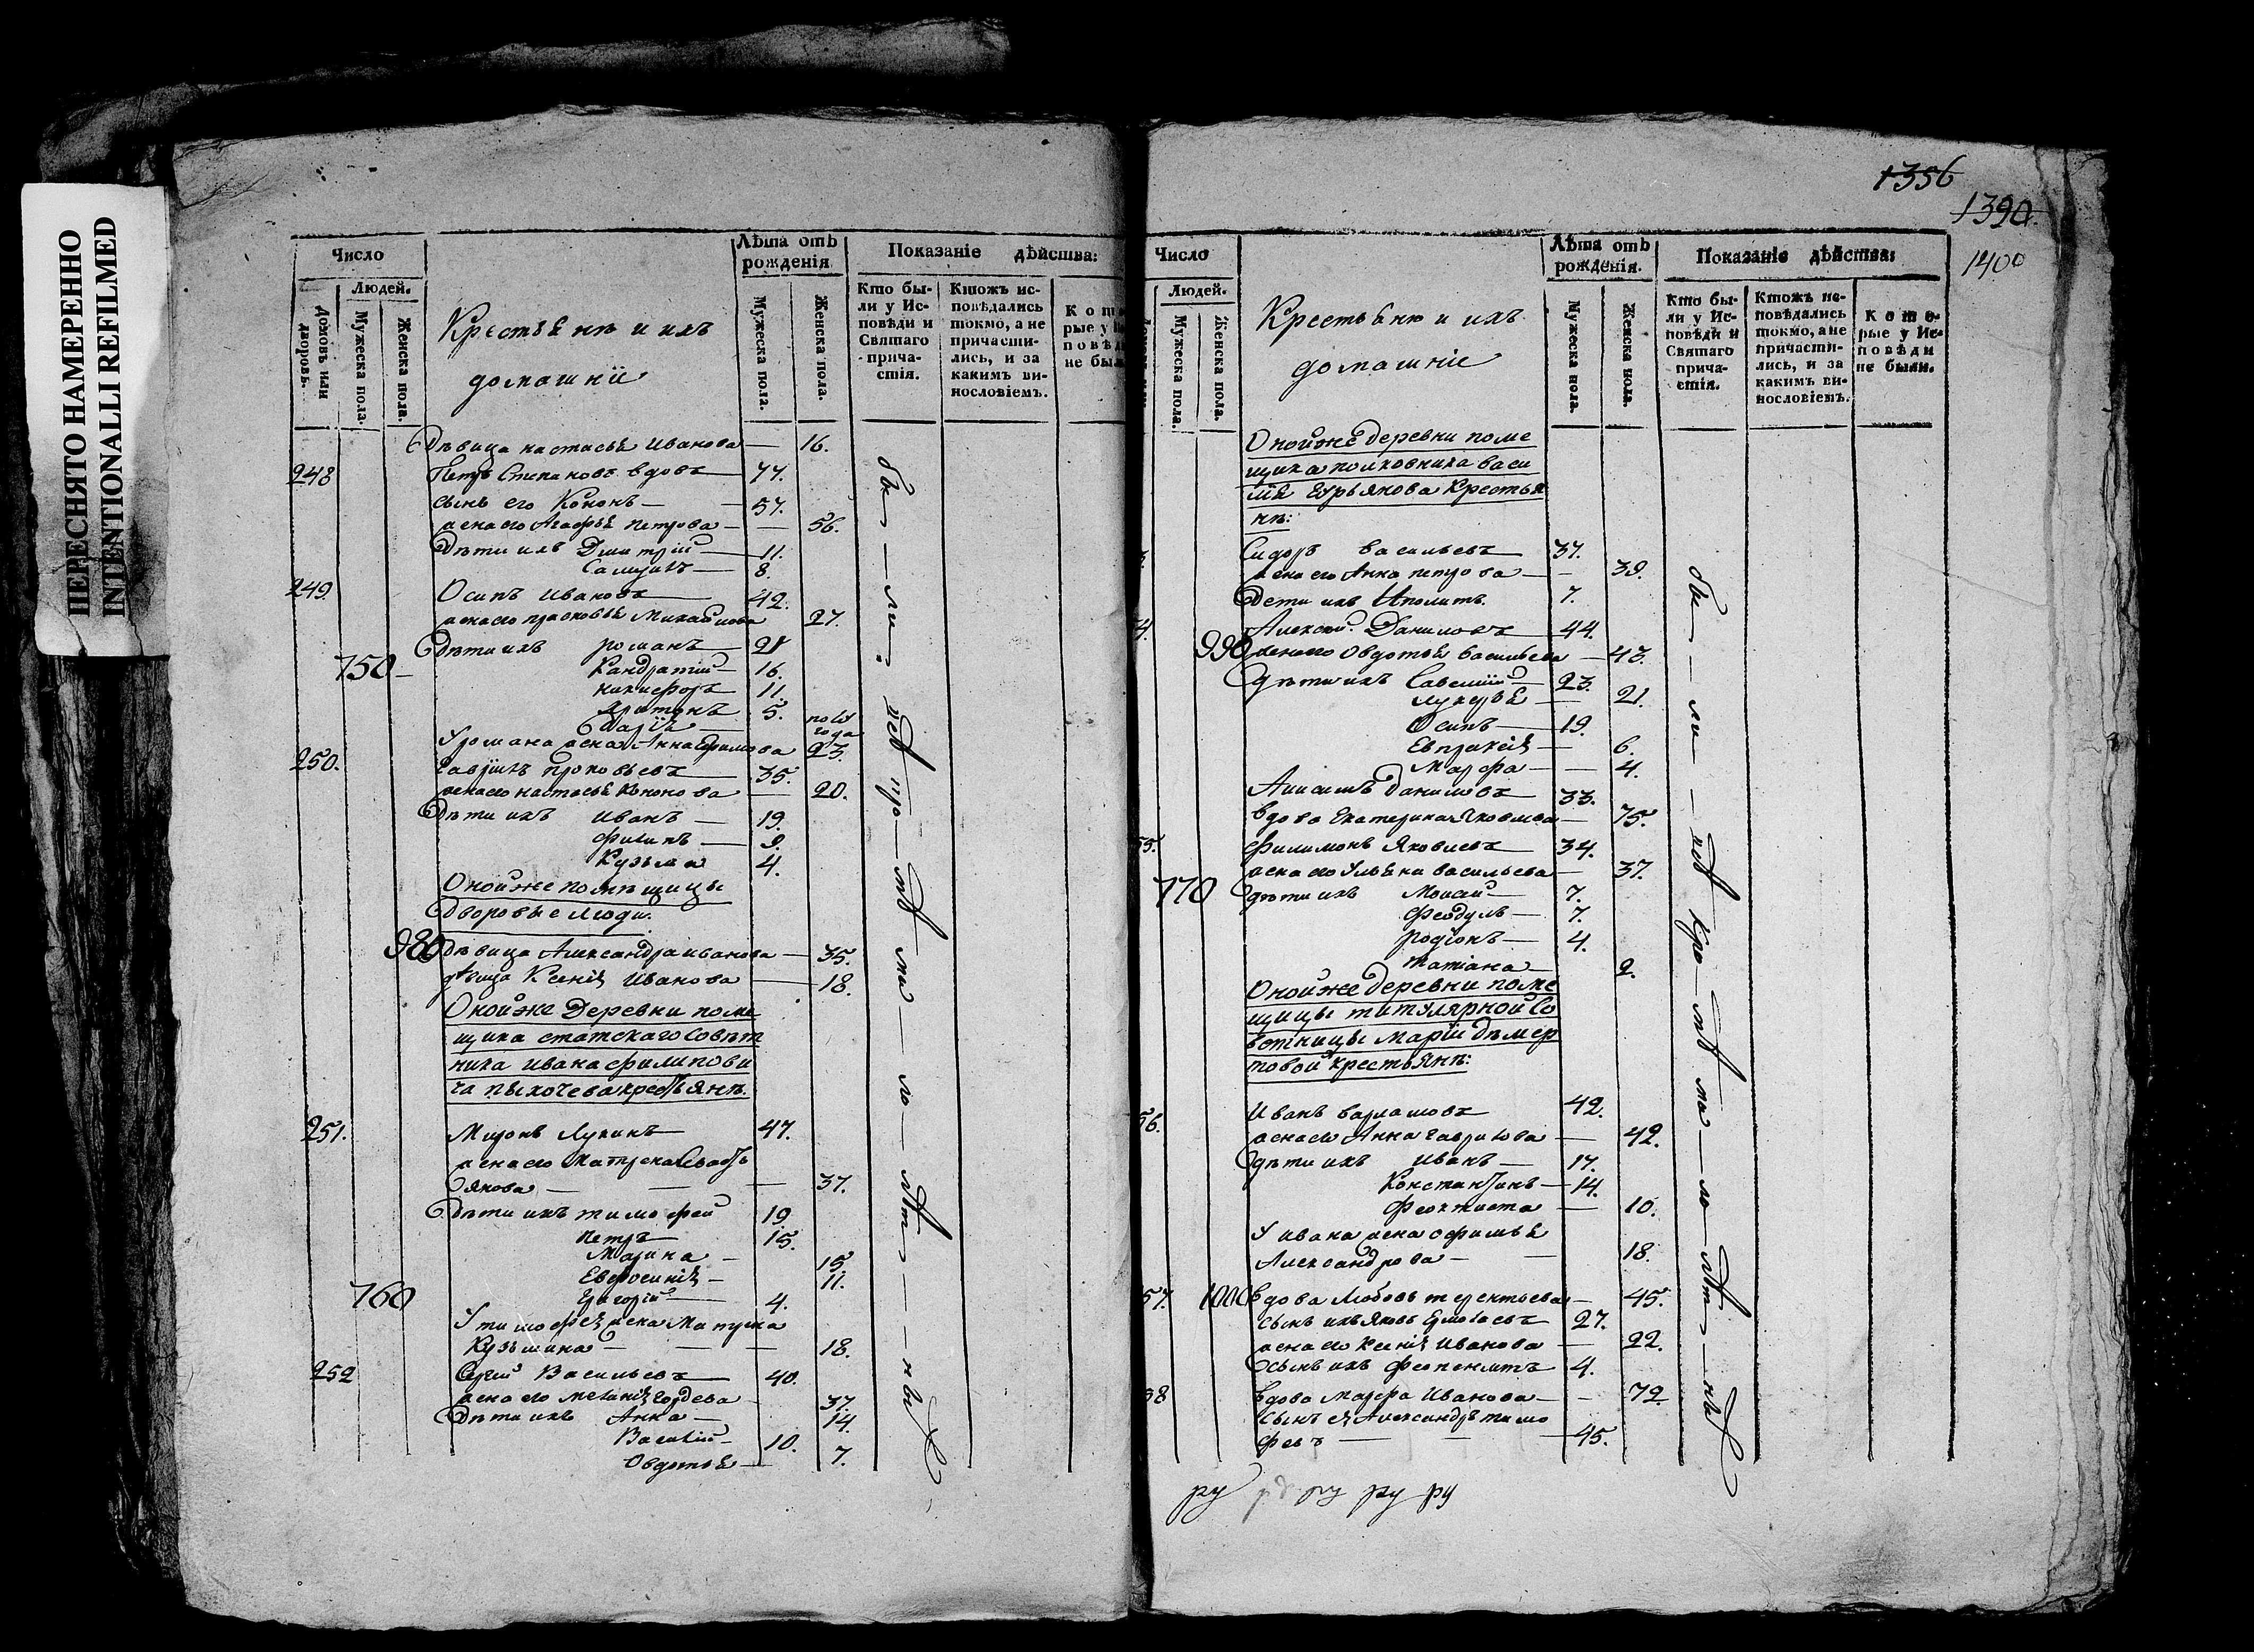 ПЕРЕСНЯТО НАМЕРЕННО
INTENTIONALLI REFILMED
Число
Лѣта отъ рожденія
Показаніе дѣйства:
Людей.
Домовъ или дворовъ.
Мужеска пола.
Женска пола.
Крестьянѣ и ихъ
домашніе
Мужеска пола.
Женска пола.
Кто были у Исповѣди и Святаго причастія.
Ктожъ исповѣдались токмо, а не причастились, и за какимъ винословіемъ.
Дѣвица настасья Иванова — 16.
248 Петръ Степановъ вдовъ — 77.
сынъ его Кононъ — 57.
жена его Агафья петрова — 56.
Дѣти ихъ Дмитрій — 11.
Самуилъ — 8.
249. Осипъ Ивановъ 42.
жена его прасковья Михайлова 27.
Дѣти ихъ романъ — 21
750 — Кандратій — 16.
никифоръ 11.
5. полу года
У романа жена Анна Ефимова 23.
250. Гаврилъ прокофьевъ 35.
жена его настасья Кононова — 20.
Дѣти ихъ Иванъ — 19.
филипъ — 9.
Кузьма 4.
Оной же помѣщицы
Дворовые люди.
980 Дѣвица Александра иванова — 35.
дѣвица Ксенія Иванова — 18.
Оной же Деревни поме
щика статского Совѣт
ника ивана филипови
ча пыхочева крестьянѣ.
251. Миронъ Лукинъ 47.
жена его Матрена Савость
янова — — — 37.
Дѣти ихъ тимофей 19
петръ 15.
Марина — 15.
Евфросинія — 11.
760 Григорій — 4.
У тимофея жена Матрена
Кузьмина — — — 18.
252 Сергій Васильевъ 40.
жена его меланія гордеева 37.
Дѣти ихъ Анна — 14.
Василій — 10.
Овдотья — 7.
бы — ли: исп
1356
1390.
1400
Число
Лѣта отъ рожденія.
Показаніе дѣйства:
Людей.
Мужеска пола
Женска пола.
Крестьяню и ихъ
домашніе
Мужеска пола.
Женска пола.
Кто были у Исповѣди и Святаго причастія.
Ктожъ исповѣдались токмо, а не причастились, и за какимъ винословіемъ.
Которые у Исповѣди не были.
Оной же деревни поме
щика полковника васи
лья Бурьянова Крестья
нѣ:
Сидоръ васильевъ 37.
жена его Анна петрова — 39.
Дети ихъ Иполитъ. 7.
Алексей Даниловъ 44.
990 жена его Овдотья васильева — 43.
Дѣти ихъ Савелій — 23.
лукерья — 21.
Осипъ — 19.
Евпраксія — 6.
Марфа — 4.
Анисимъ Даниловъ 33.
вдова Екатерина Яковлева — 75.
55. филимонъ Яковлевъ 34.
жена его Ульяна васильева — 37.
770 дѣти ихъ Моисей — 7.
феодулъ — 7.
родіонъ — 4.
татіана — 2.
Оной же деревни поме
щицы титулярной Со
ветницы Маріи дѣмер
товой крестьянѣ:
56. Иванъ варламовъ 42.
жена его Анна гаврилова — 42.
дѣти ихъ Иванъ — 17.
Константинъ — 14.
феоктиста — 10.
У ивана жена офимья
Александрова — 18.
57. 1000 вдова Любовь терентьева — 45.
сынъ ихъ Яковъ Ермолаевъ 27.
жена его Ксенія Иванова — 22.
сынъ ихъ феопемптъ 4.
58 вдова марфа Иванова — 72.
сынъ ея Александръ тимо
феевъ — 45.
ру ру ру ру